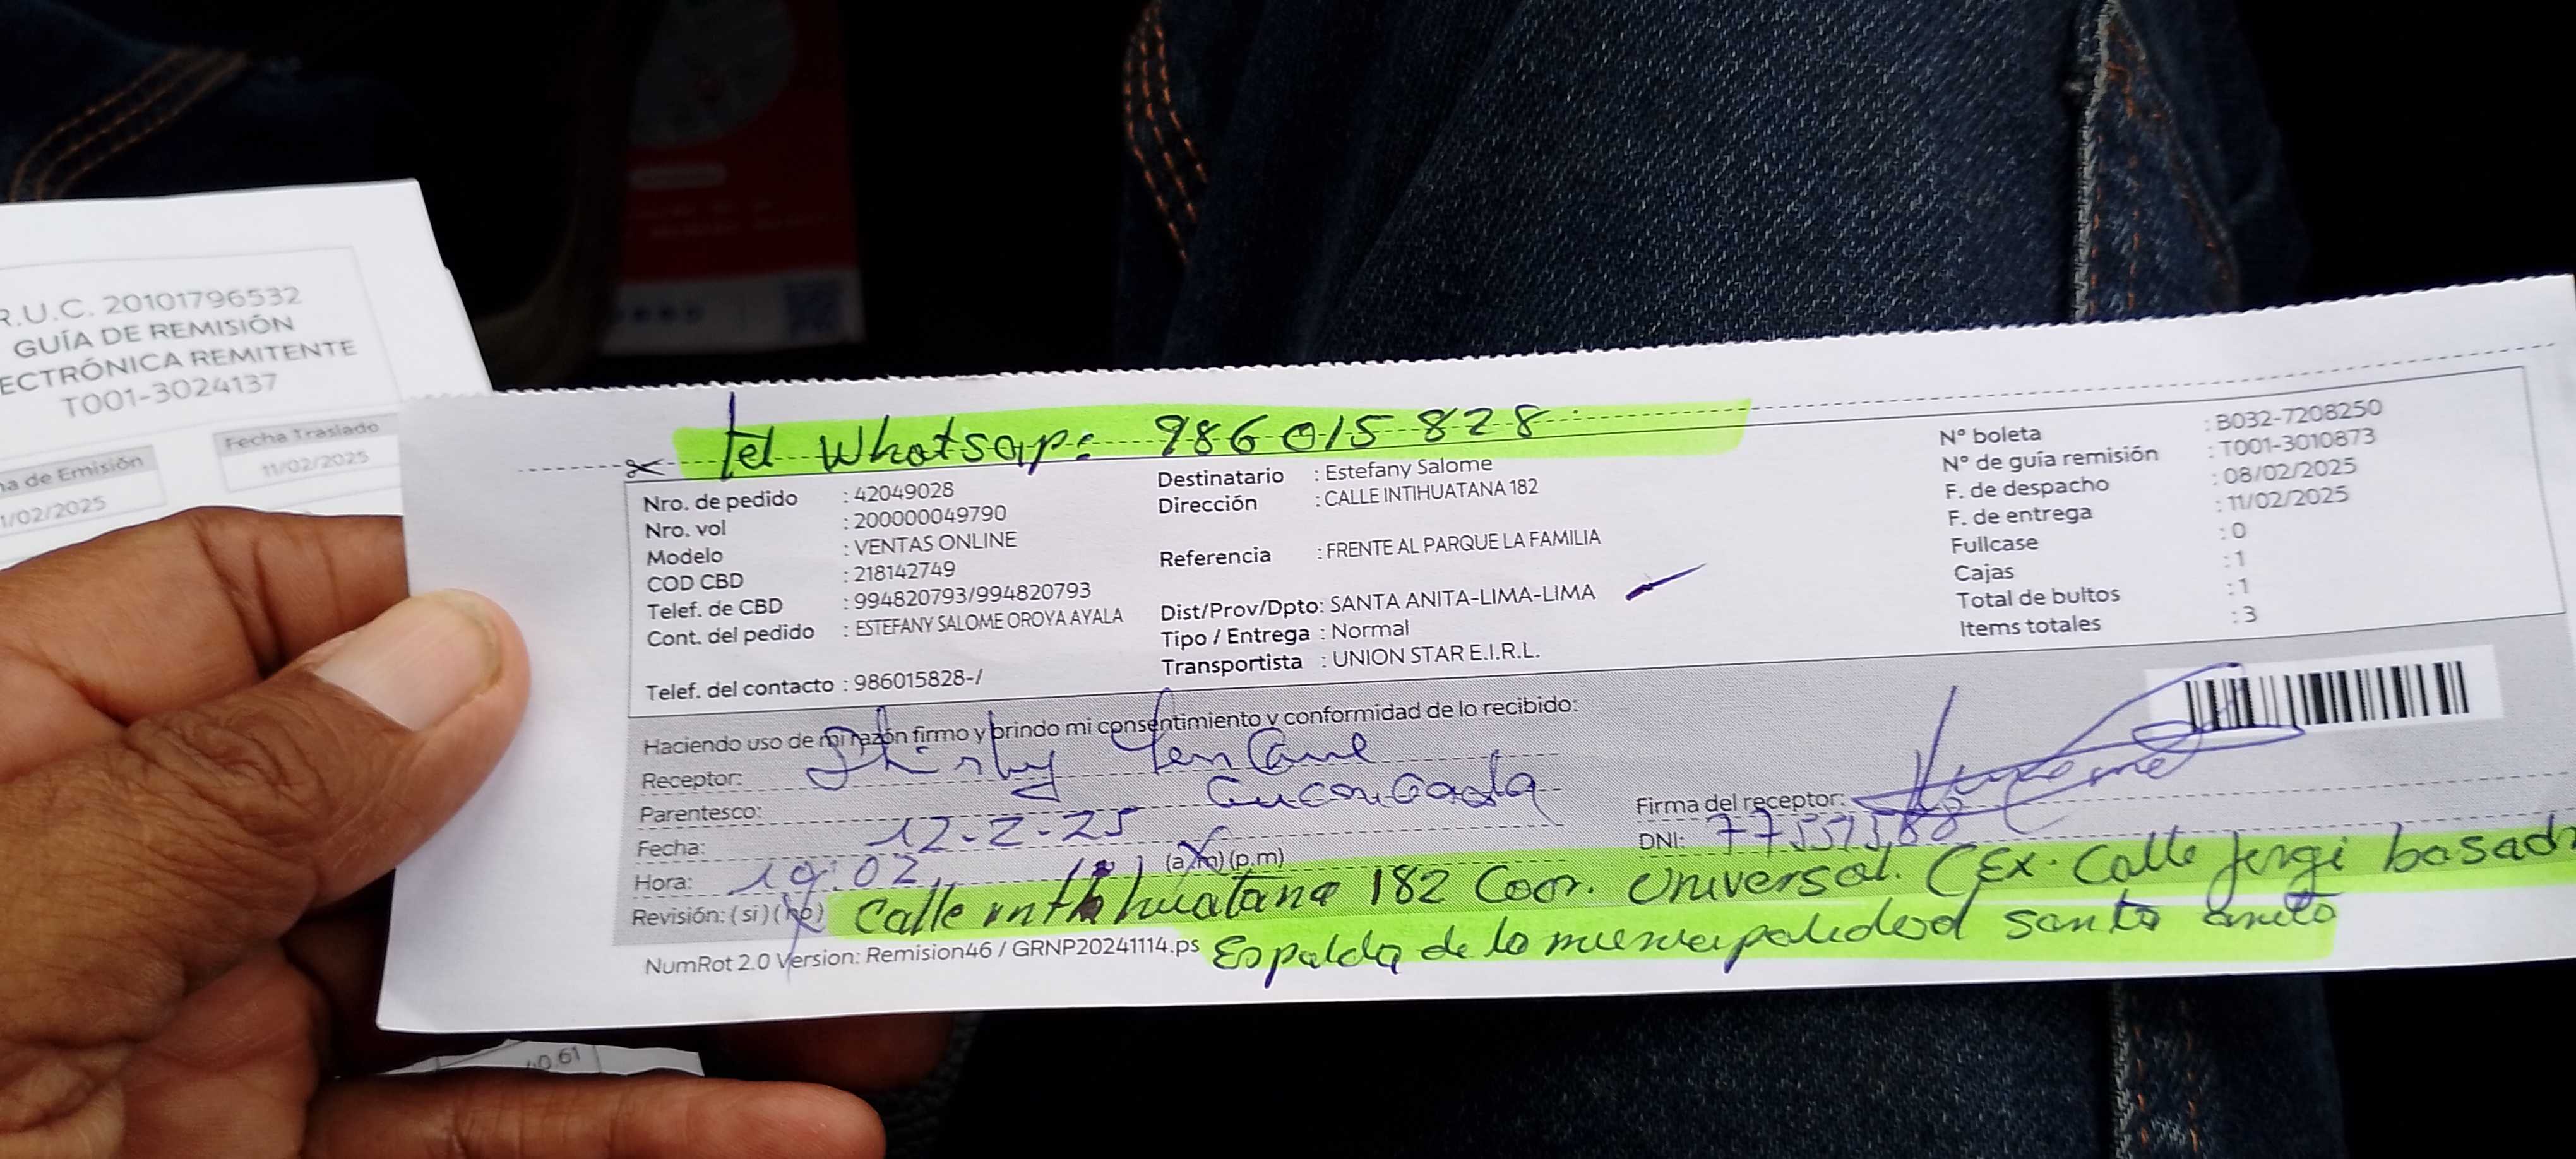 R.U.C. 20101796532
GUÍA DE REMISIÓN
ECTRÓNICA REMITENTE
T001-3024137
a de Emisión
1/02/2025
Fecha Traslado
11/02/2025
tel Whatsap: 986015828
Nro. de pedido : 42049028
Nro. vol : 200000049790
Modelo : VENTAS ONLINE
COD CBD : 218142749
Telef. de CBD : 994820793/994820793
Cont. del pedido : ESTEFANY SALOME OROYA AYALA
Telef. del contacto : 986015828-/
Destinatario : Estefany Salome
Dirección : CALLE INTIHUATANA 182
Referencia : FRENTE AL PARQUE LA FAMILIA
Dist/Prov/Dpto: SANTA ANITA-LIMA-LIMA
Tipo / Entrega : Normal
Transportista : UNION STAR E.I.R.L.
N° boleta : B032-7208250
N° de guía remisión : T001-3010873
F. de despacho : 08/02/2025
F. de entrega : 11/02/2025
Fullcase : 0
Cajas : 1
Total de bultos : 1
Items totales : 3
Haciendo uso de mi razón firmo y brindo mi consentimiento y conformidad de lo recibido:
Receptor:
Parentesco:
Fecha: 12-2-25
Hora: 19:02 (a.m) (p.m)
Revisión: (si) (no)
Firma del receptor:
DNI:
Calle intihuatana 182 Coor. Universal. (Ex. Calle Jorgi basad
Espalda de la municipalidad santa anita
NumRot 2.0 Version: Remision46 / GRNP20241114.ps
40 61